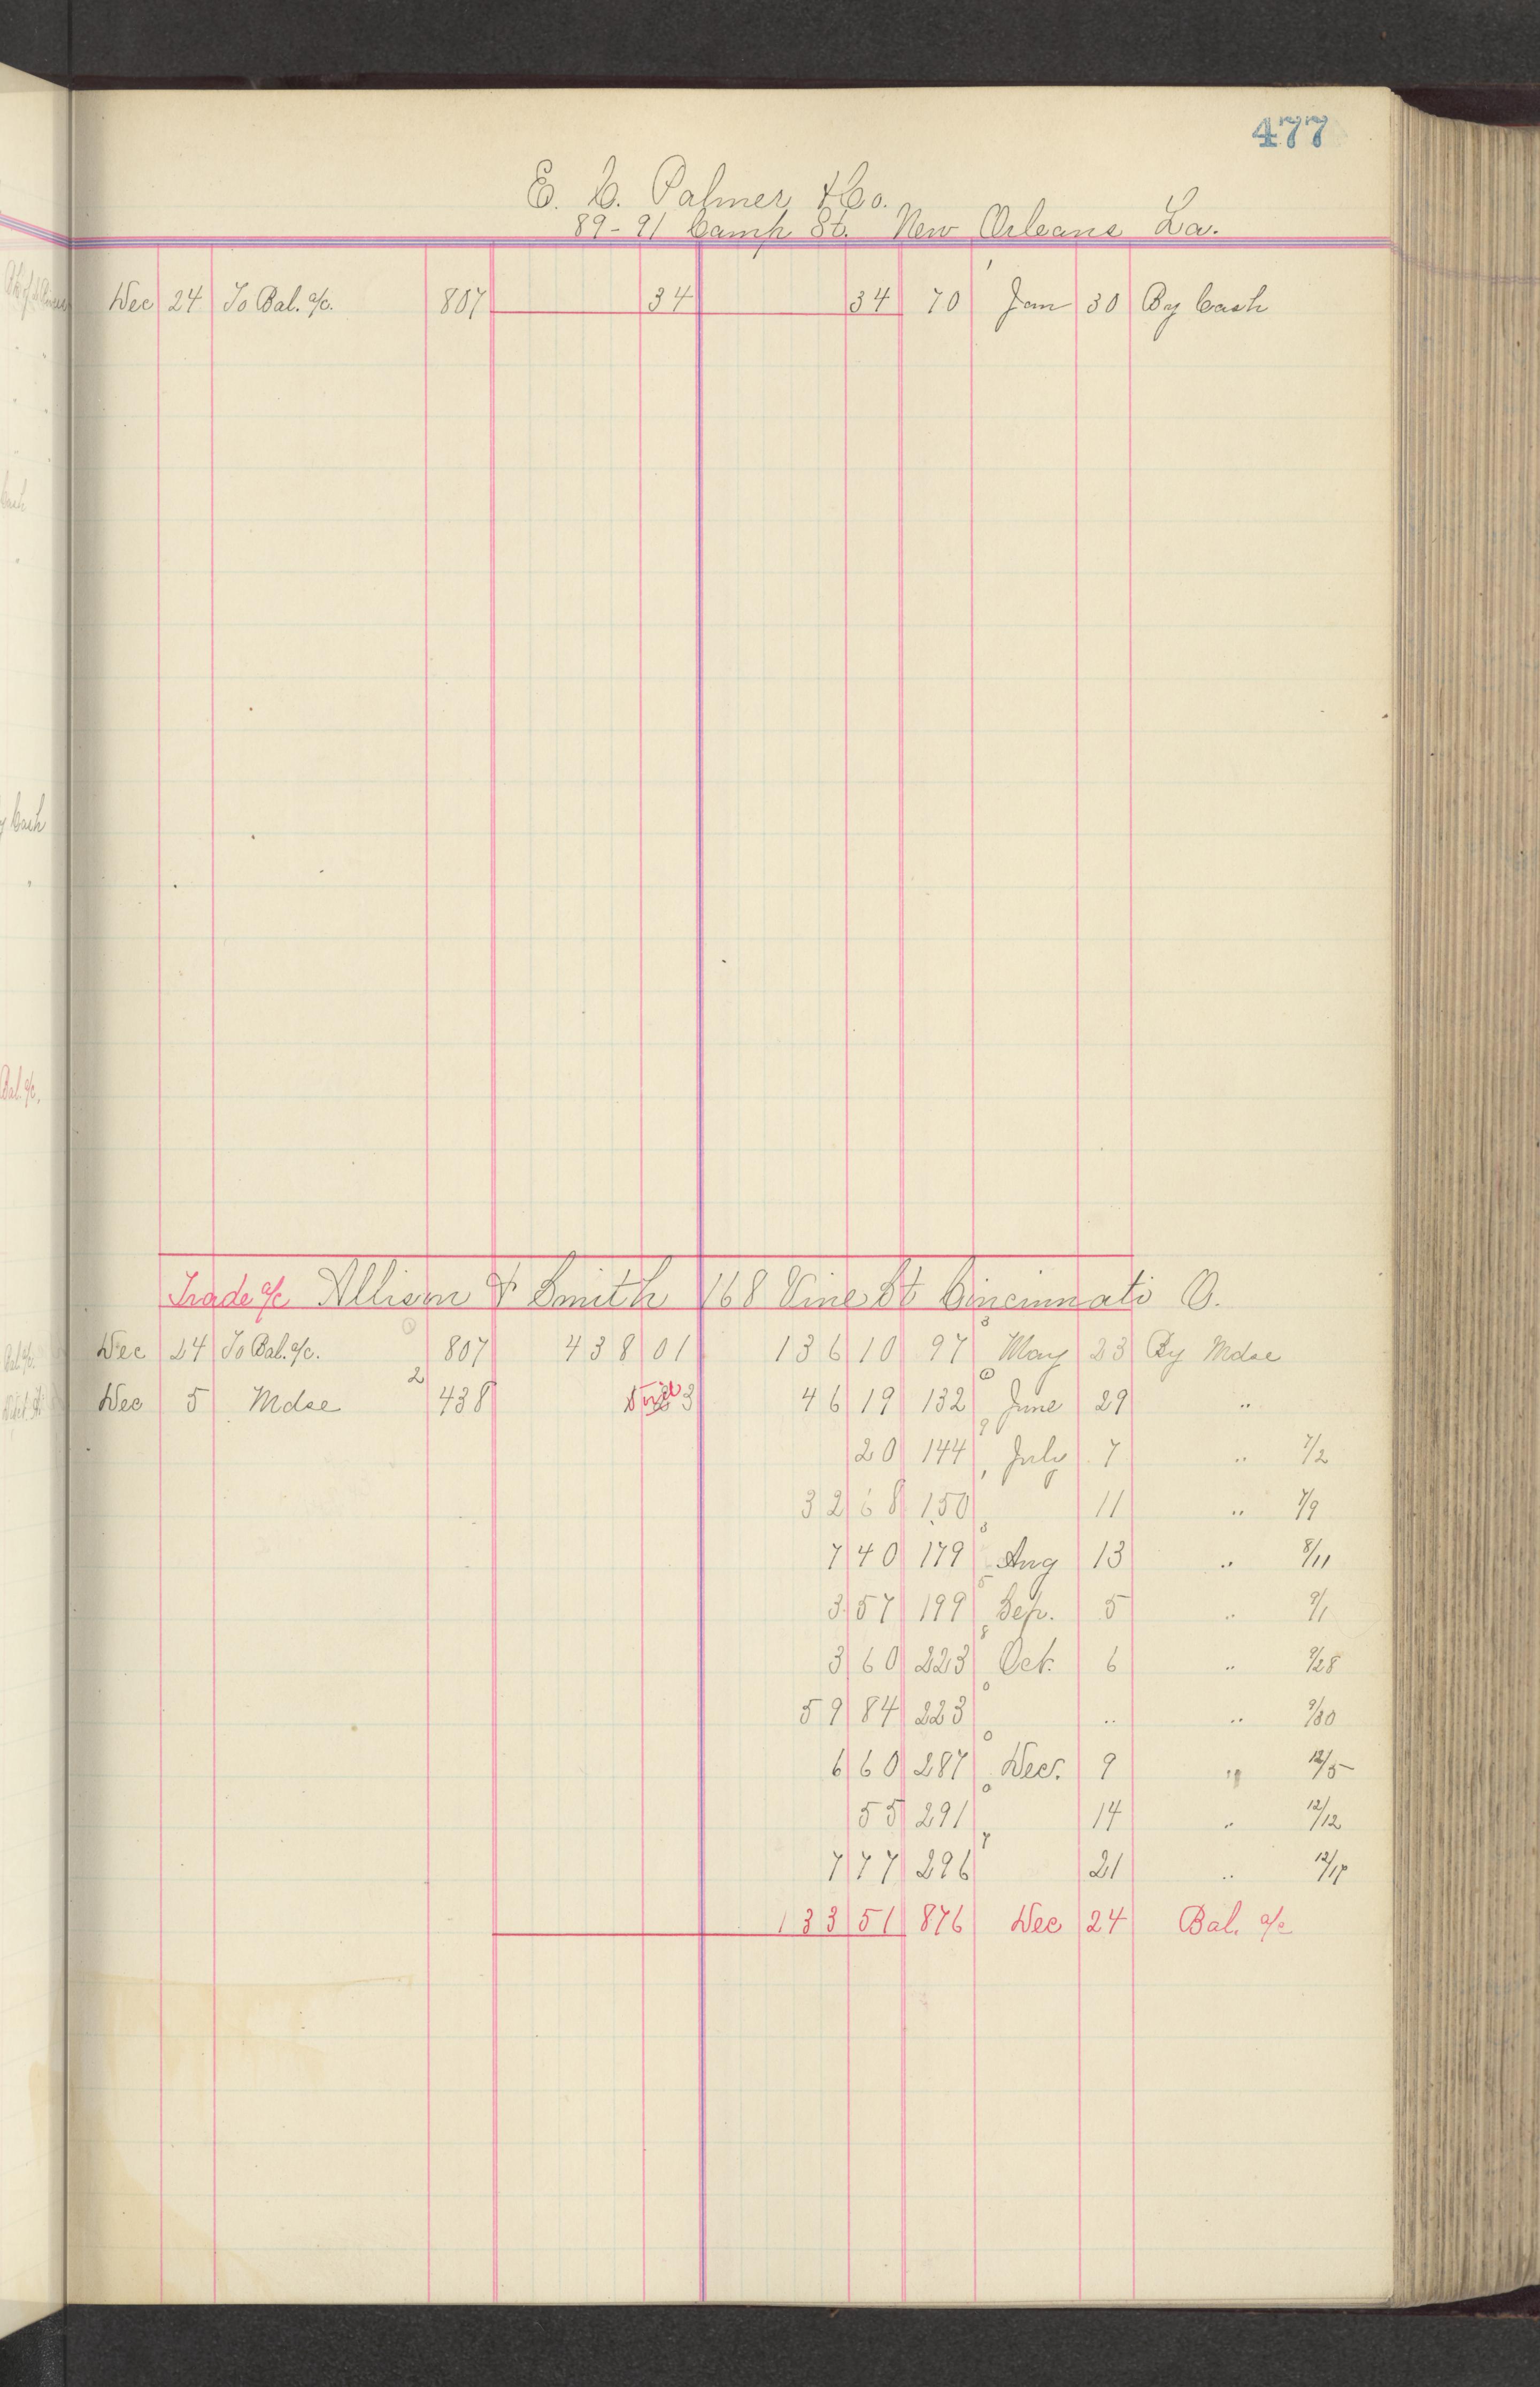 477
E. C. Palmer & Co.
89-91 Camp St. New Orleans La.
Dec 24 To Bal. a/c. 807 34 34 70 Jan 30 By Cash
Trade a/c Allison & Smith 168 Vine St Cincinnati O.
Dec 24 To Bal. a/c. 807 438 01 136 10 97 May 23 By Mdse
Dec 5 Mdse 438 46 19 132 June 29 "
20 144 July 7 " 7/2
32 68 150 11 " 7/9
7 40 179 Aug 13 " 8/11
3 57 199 Sep. 5 " 9/1
3 60 223 Oct. 6 " 9/28
59 84 223 " " 9/30
6 60 287 Dec. 9 " 12/5
55 291 14 " 12/12
7 77 296 21 " 12/17
133 51 876 Dec 24 Bal. a/c